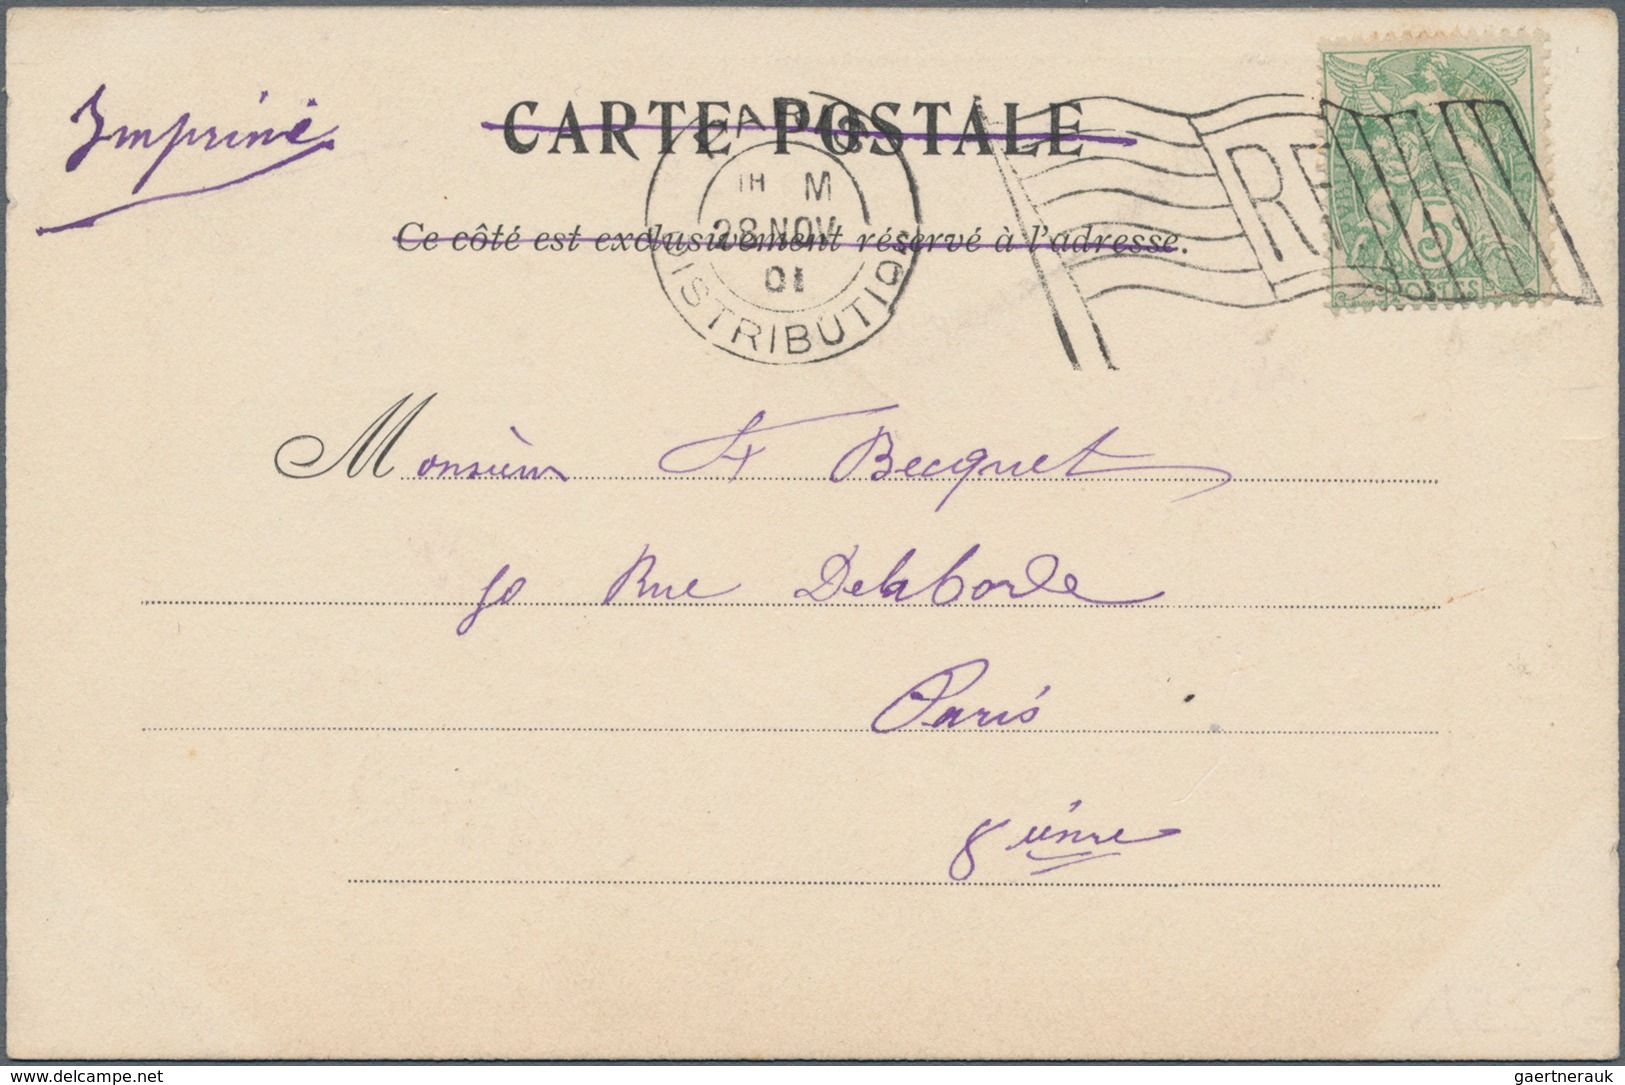 Imprimé
CARTE POSTALE
Ce côté est exclusivement réservé à l'adresse.
PARIS
1H M
28 NOV
01
DISTRIBUTION
RF
5
POSTES
Monsieur Becquet
Rue Delaborde
Paris
8
delcampe.net
gaertnerauk